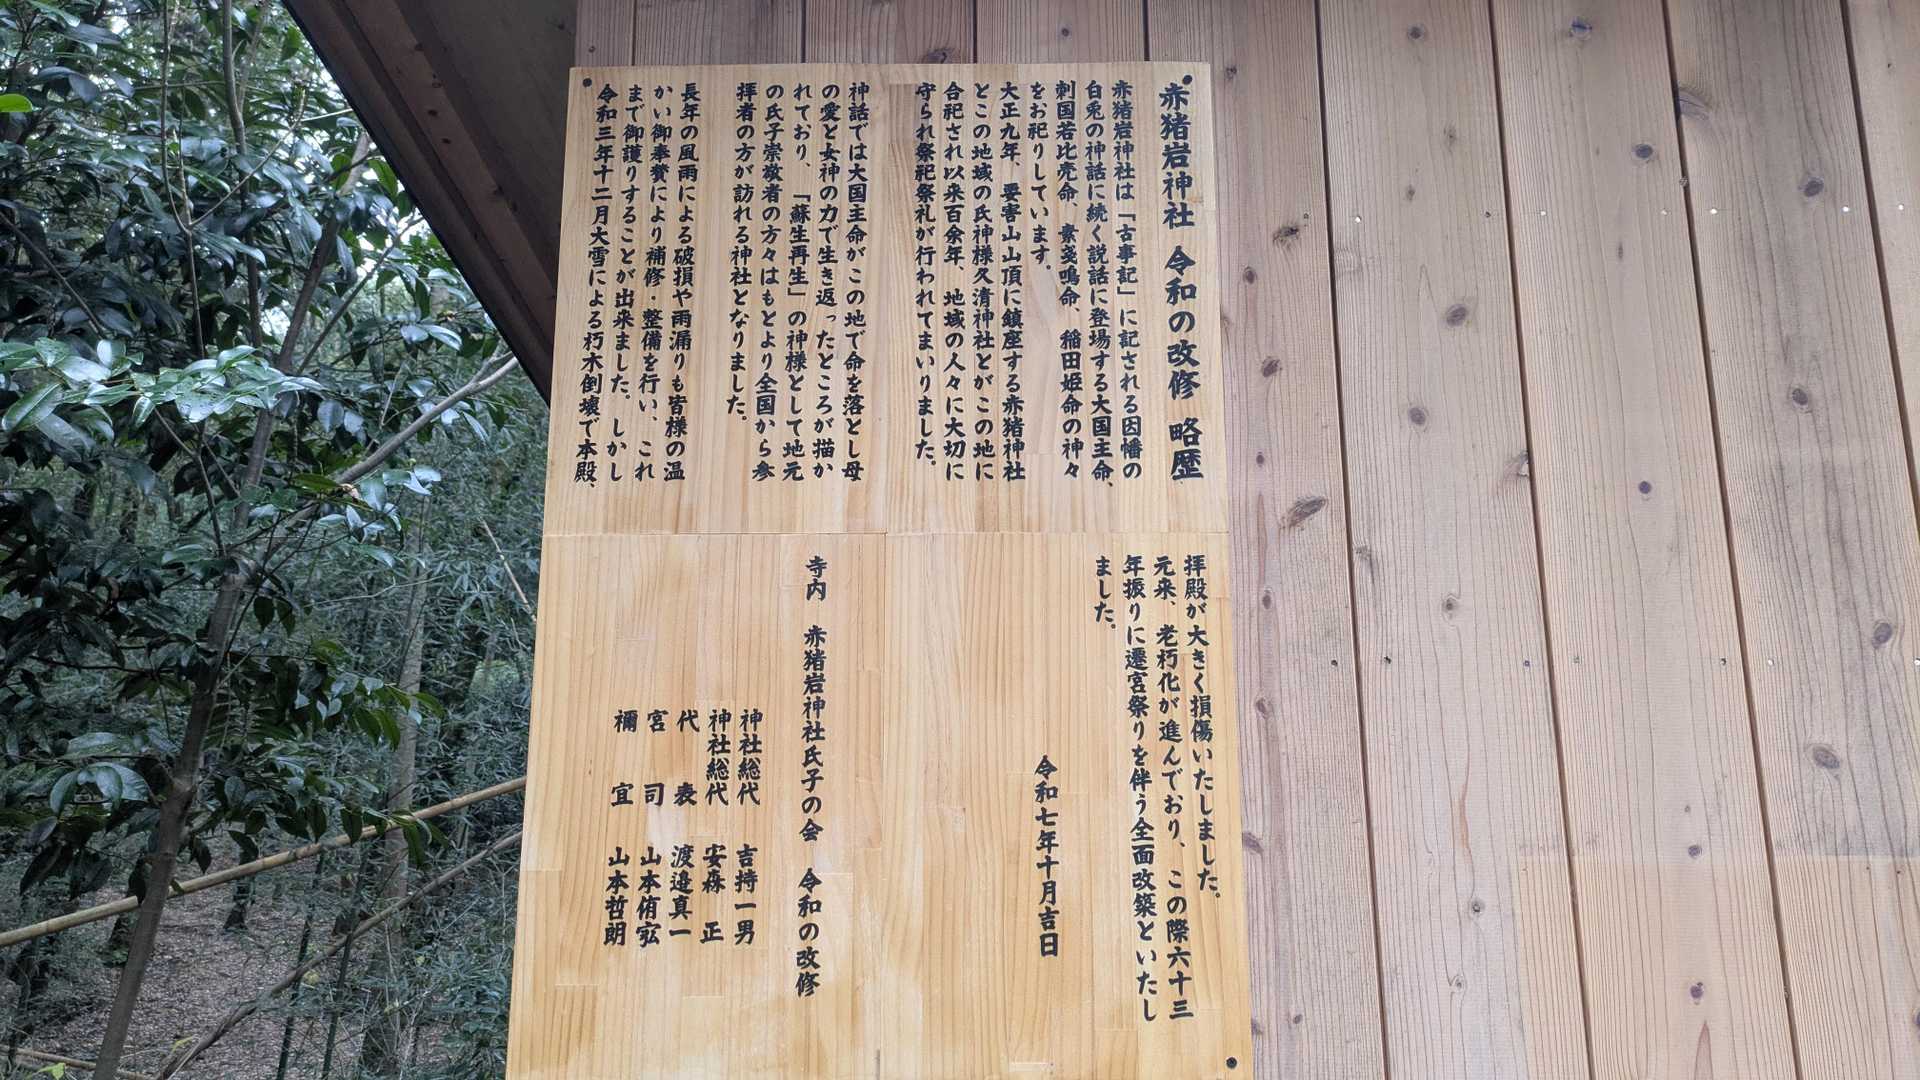 赤猪岩神社 令和の改修 略歴
赤猪岩神社は「古事記」に記される因幡の
白兎の神話に続く説話に登場する大国主命、
刺国若比売命、素戔鳴命、稲田姫命の神々
をお祀りしています。
大正九年、要害山山頂に鎮座する赤猪神社
とこの地域の氏神様久清神社とがこの地に
合祀され以来百余年、地域の人々に大切に
守られ祭祀祭礼が行われてまいりました。
神話では大国主命がこの地で命を落とし母
の愛と女神の力で生き返ったところが描か
れており、「蘇生再生」の神様として地元
の氏子崇敬者の方々はもとより全国から参
拝者の方が訪れる神社となりました。
長年の風雨による破損や雨漏りも皆様の温
かい御奉賛により補修・整備を行い、これ
まで御護りすることが出来ました。しかし
令和三年十二月大雪による朽木倒壊で本殿、
拝殿が大きく損傷いたしました。
元来、老朽化が進んでおり、この際六十三
年振りに遷宮祭りを伴う全面改築といたし
ました。
令和七年十月吉日
寺内 赤猪岩神社氏子の会 令和の改修
神社総代 吉持一男
神社総代 安森 正
代表 渡邉真一
宮司 山本侑宏
禰宜 山本哲朗